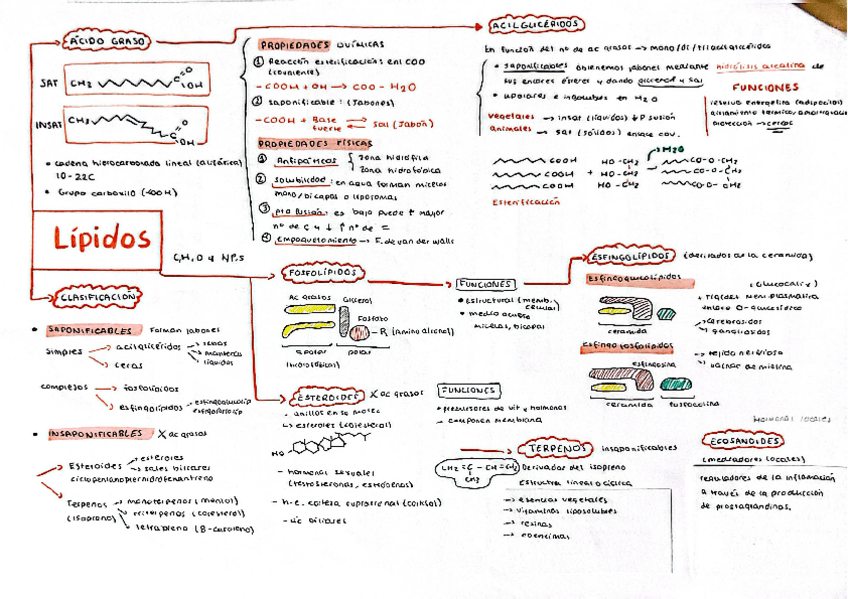 ÁCIDO GRASO
SAT
CH3
O
OH
INSAT
CH3
C
O
OH
• cadena hidrocarbonada lineal (alifática)
10-22C
• Grupo carboxilo (-COOH)
PROPIEDADES QUÍMICAS
① Reacción esterificación: enl COO
(covalente)
-COOH + OH → COO - H2O
② saponificable: (Jabones)
-COOH + Base fuerte ⇄ Sal (Jabón)
PROPIEDADES FÍSICAS
① Antipáticos { zona hidrófila
zona hidrofóbica
② solubilidad: en agua forman micelas
mono/bicapas o liposomas
③ pto fusión: es bajo puede ↑ mayor
nº de C y ↓ ↑ nº de =
④ Empaquetamiento → F. de van der walls
ACILGLICÉRIDOS
En función del nº de ac grasos → mono/di/triacilglicéridos
• saponificables obtenemos jabones mediante hidrólisis alcalina de
sus enlaces ésteres y dando glicerol y sal
• apolares e insolubles en H2O
vegetales → insat (líquidos) ↓P fusión
animales → sat (sólidos) enlace cov.
FUNCIONES
reserva energética (adipocito)
aislamiento térmico
protección → ceras
H2O
COOH HO-CH2 CO-O-CH2
COOH + HO-CH CO-O-CH2
COOH HO-CH2 CO-O-
Esterificación
Lípidos
C,H,O y N,P,S
CLASIFICACIÓN
• SAPONIFICABLES Forman jabones
simples → acilglicéridos → sebos
→ mantecas
→ líquidos
→ ceras
complejos → fosfolípidos
→ esfingolípidos → esfingoglucolip
esfingofosfolip
• INSAPONIFICABLES X ac grasos
Esteroides → esteroles
→ sales biliares
ciclopentanoperhidrofenantreno
Terpenos → monoterpenos (mentol)
(isopreno) → triterpenos (colesterol)
→ tetraterpeno (β-caroteno)
FOSFOLÍPIDOS
Ac grasos Glicerol
Fosfato
- R (aminoalcohol)
apolar polar
(hidrofóbica)
FUNCIONES
• estructural (memb. celular)
• medio acuoso
micelas, bicapas
ESFINGOLÍPIDOS (derivados de la ceramida)
Esfingoglucolípidos
(Glucocálix)
+ rigidez mem. plasmática
enlace O-glucosídico
→ cerebrósidos
→ gangliósidos
ceramida
Esfingofosfolípidos
esfingosina
→ tejido nervioso
→ vainas de mielina
ceramida fosfocolina
ESTEROIDES X ac grasos
- anillos en su molec
↳ esteroles (colesterol)
HO
- hormonas sexuales
(testosterona, estrógenos)
- h.e. corteza suprarrenal (cortisol)
- ác biliares
FUNCIONES
• precursores de vit y hormonas
- componen membrana
TERPENOS insaponificables
CH2=C-CH=CH2
CH3
Derivados del isopreno
estructura lineal o cíclica
→ esencias vegetales
→ vitaminas liposolubles
→ resinas
→ coenzimas
Hormonas locales
ECOSANOIDES
(mediadores locales)
reguladores de la inflamación
a través de la producción
de prostaglandinas.